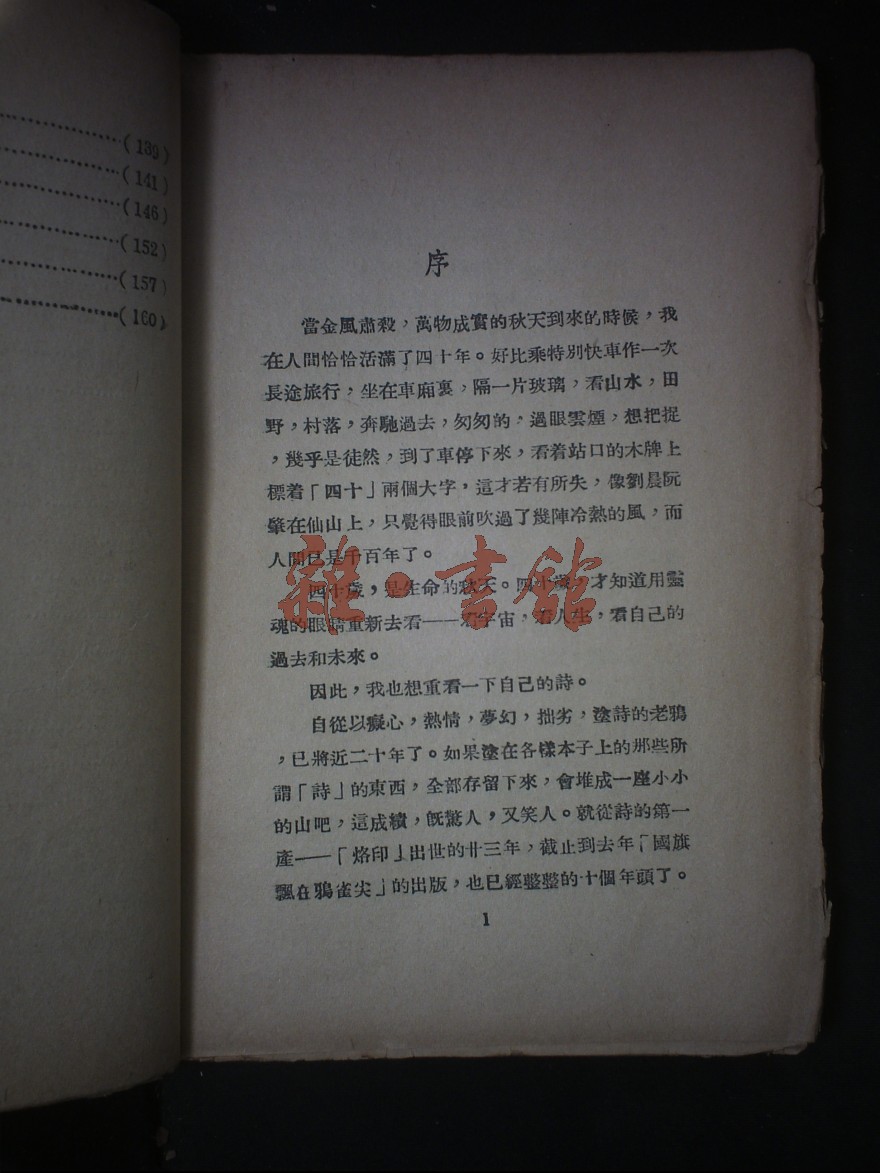 ……………(139)
……………(141)
……………(146)
……………(152)
……………(157)
……………(160)
序
當金風肅殺，萬物成實的秋天到來的時候，我
在人間恰恰活滿了四十年。好比乘特別快車作一次
長途旅行，坐在車廂裏，隔一片玻璃，看山水，田
野，村落，奔馳過去，匆匆的，過眼雲煙，想把捉
，幾乎是徒然，到了車停下來，看着站口的木牌上
標着「四十」兩個大字，這才若有所失，像劉晨阮
肇在仙山上，只覺得眼前吹過了幾陣冷熱的風，而
人間已是千百年了。
四十歲，是生命的秋天。四十歲，才知道用靈
魂的眼睛重新去看——看宇宙，看人生，看自己的
過去和未來。
因此，我也想重看一下自己的詩。
自從以癡心，熱情，夢幻，拙劣，塗詩的老鴉
，已將近二十年了。如果塗在各樣本子上的那些所
謂「詩」的東西，全部存留下來，會堆成一座小小
的山吧，這成績，旣驚人，又笑人。就從詩的第一
產——「烙印」出世的廿三年，截止到去年「國旗
飄在鴉雀尖」的出版，也已經整整的十個年頭了。
1
雜·書館